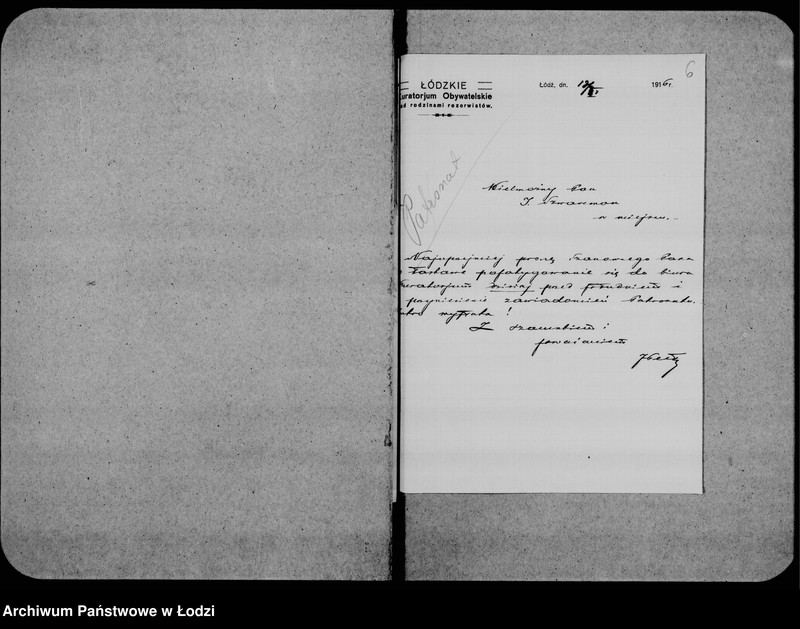 6
ŁÓDZKIE
uratorjum Obywatelskie
ad rodzinami rezerwistów.
Łódź, dn. 19 1916 r.
Patronat
Wielmożny Pan
J. Szwarcman
w miejscu.-
Najuprzejmiej proszę Szanownego Pana
o łaskawe pofatygowanie się do biura
Kuratorjum dzisiaj przed południem i
przyniesienie zawiadomień Patronatu.
Jutro wypłata!
Z szacunkiem i
poważaniem
Archiwum Państwowe w Łodzi